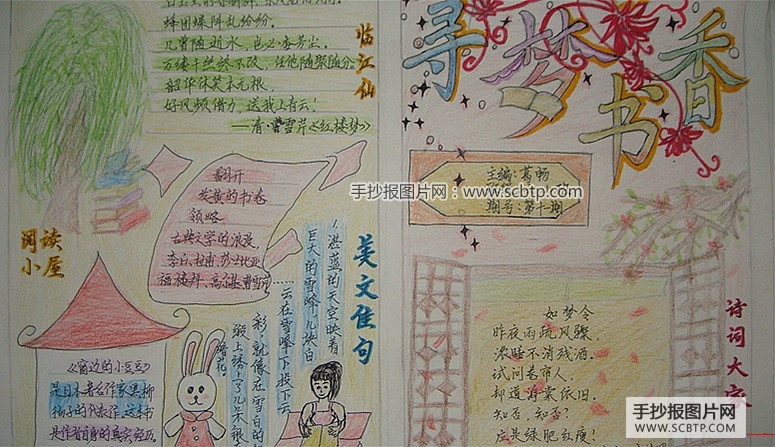 蜂团蝶阵乱纷纷。
几曾随逝水，岂必委芳尘。
万缕千丝终不改，任他随聚随分。
韶华休笑本无根，
好风频借力，送我上青云！
——清·曹雪芹《红楼梦》
临江仙
翻开
发黄的书卷
领略
古典文学的浪漫，
李白、杜甫、莎士比亚
阅读
小屋
《窗边的小豆豆》
是日本著名作家黑柳
彻子的代表作，这本书
是作者自身的真实经历。
美文佳句
湛蓝的天空映着
巨大的雪峰，几块白
云在雪峰下投下云
彩，就像在雪白的
缎上绣上了几朵银
寻梦书香
主编：葛畅
手抄报图片网：www.scbtp.com
期号：第十期
诗词大
如梦令
昨夜雨疏风骤，
浓睡不消残酒。
试问卷帘人，
却道海棠依旧。
知否，知否？
应是绿肥红瘦！
手抄报图片网
WWW.SCBTP.COM